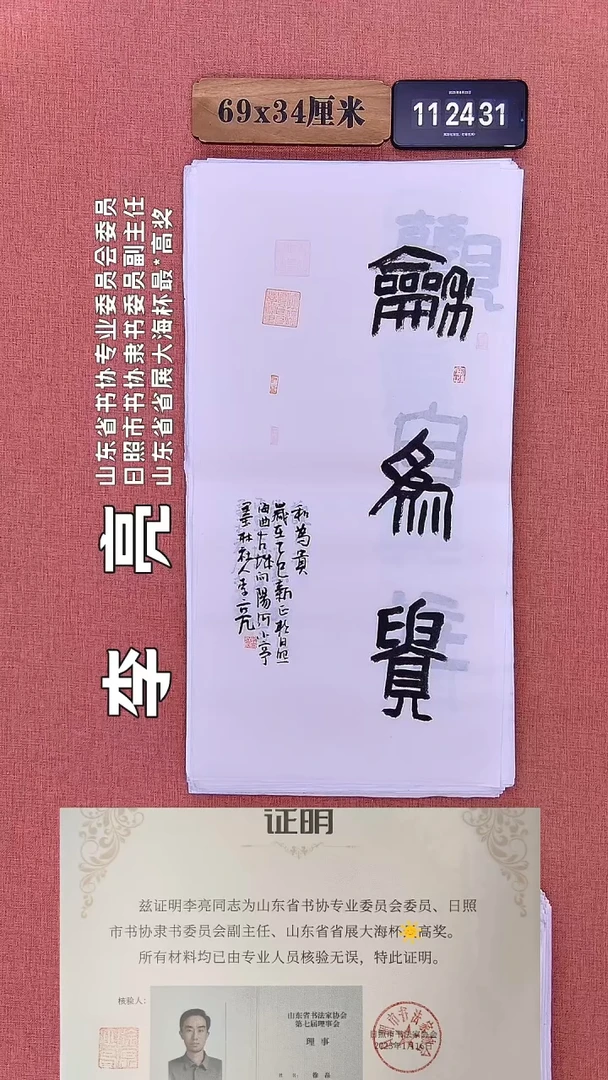 69x34厘米
2025年8月20日
11 24 31
山东省书协专业委员会委员
日照市书协隶书委员副主任
山东省省展大海杯最*高奖
李 亮
龢為貴
和為貴
歲在乙巳新正於日照
海曲古城向陽河小亭
墨耕社人李亮
证明
兹证明李亮同志为山东省书协专业委员会委员、日照
市书协隶书委员会副主任、山东省省展大海杯高奖。
所有材料均已由专业人员核验无误，特此证明。
核验人：
山东省书法家协会
第七届理事会
理 事
日照市书法家协会
2025年1月16日